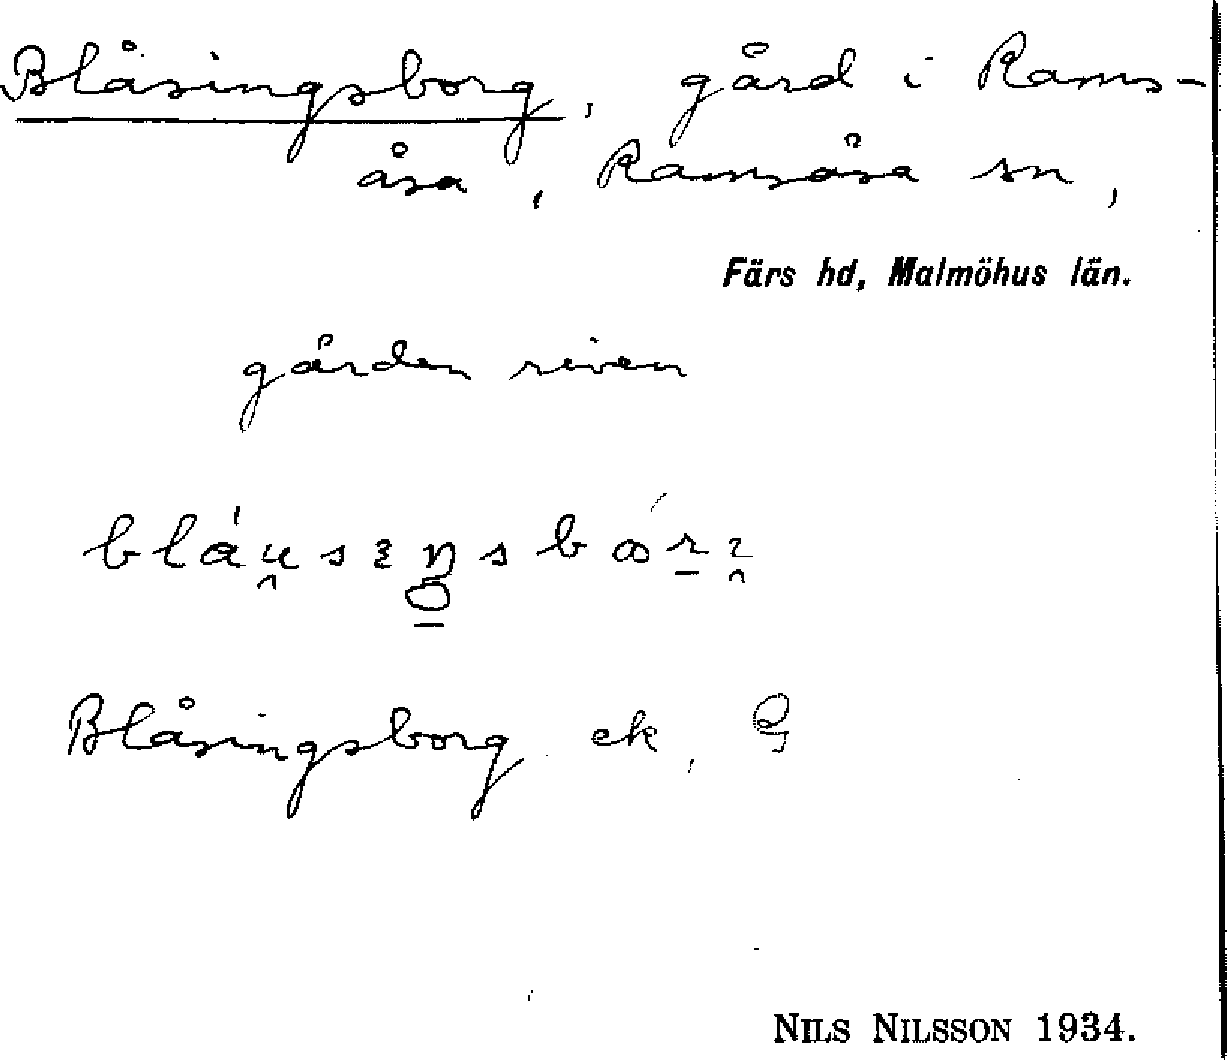 Blåsingsborg, gård i Rams-
åsa, Ramsåsa sn,
Färs hd, Malmöhus län.
gården riven
Blåsingsborg ek, G
NILS NILSSON 1934.